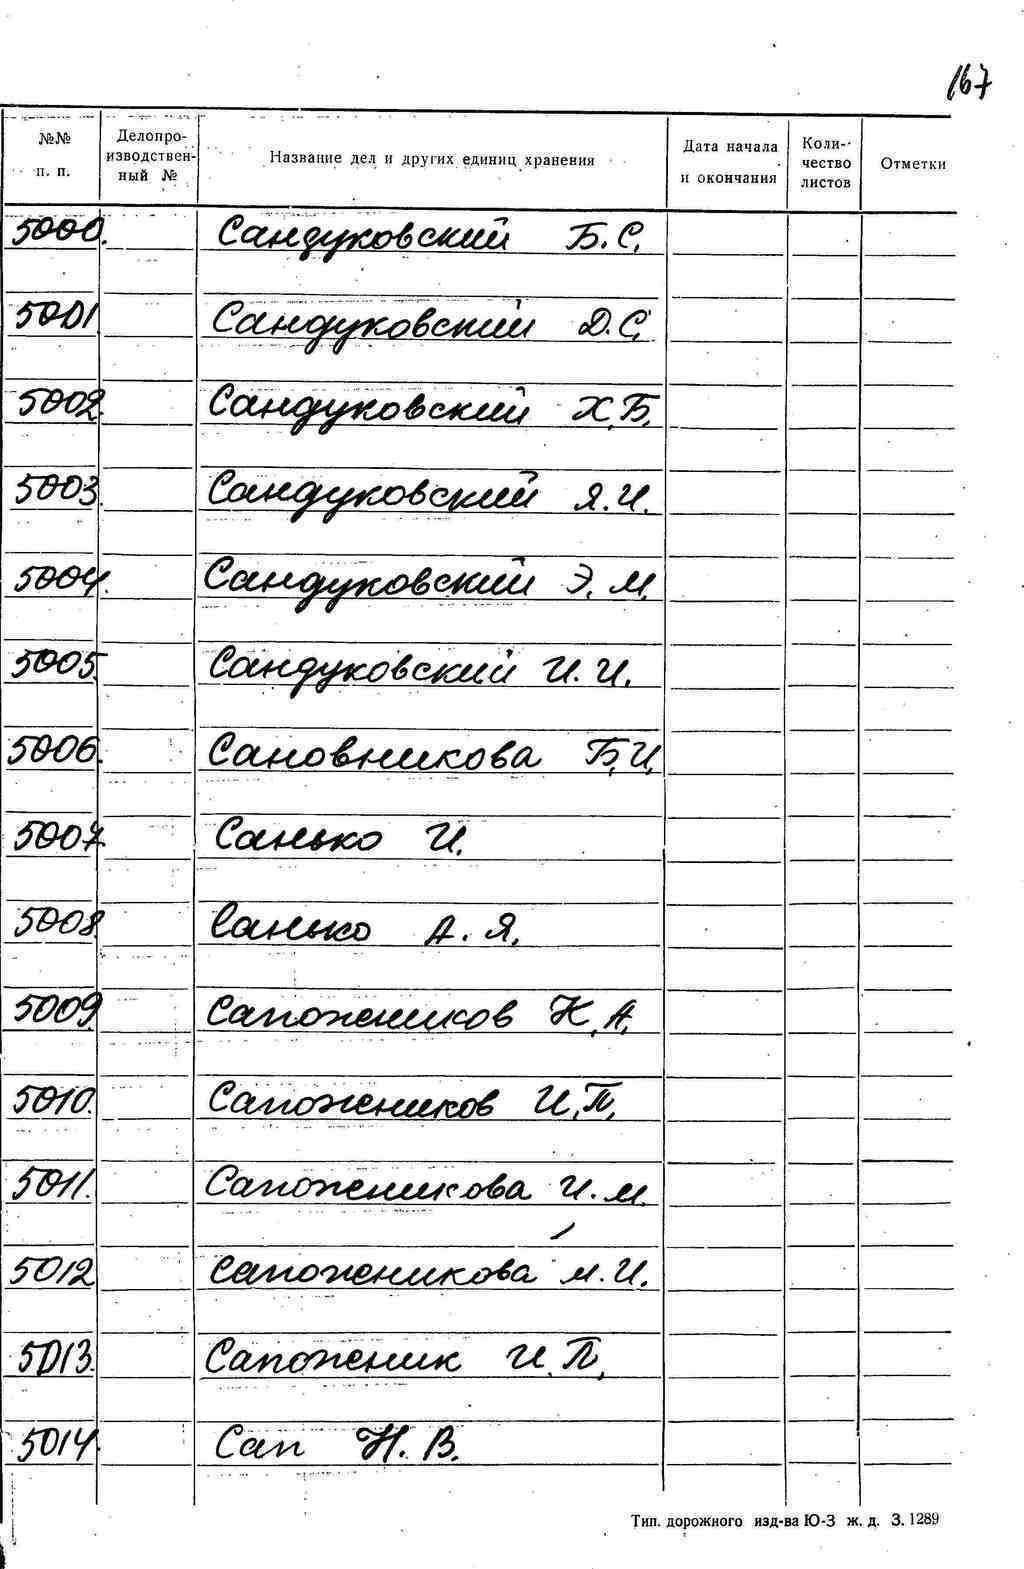 167
№№ п. п. Делопроизводственный № Название дел и других единиц хранения Дата начала и окончания Количество листов Отметки
5000. Сандуковский Б.С.
5001 Сандуковский Д.С.
5002. Сандуковский Х.Б.
5003. Сандуковский Я.И.
5004. Сандуковский Э.М.
5005. Сандуковский И.И.
5006. Сановникова Б.И.
5007. Санько И.
5008. Санько А.Я.
5009. Сапожников К.А.
5010. Сапожеников И.П.
5011. Сапоженикова И.М.
5012 Сапоженикова М.И.
5013. Сапоженик И.П.
5014. Сап Н.В.
Тип. дорожного изд-ва Ю-З ж. д. З. 1289